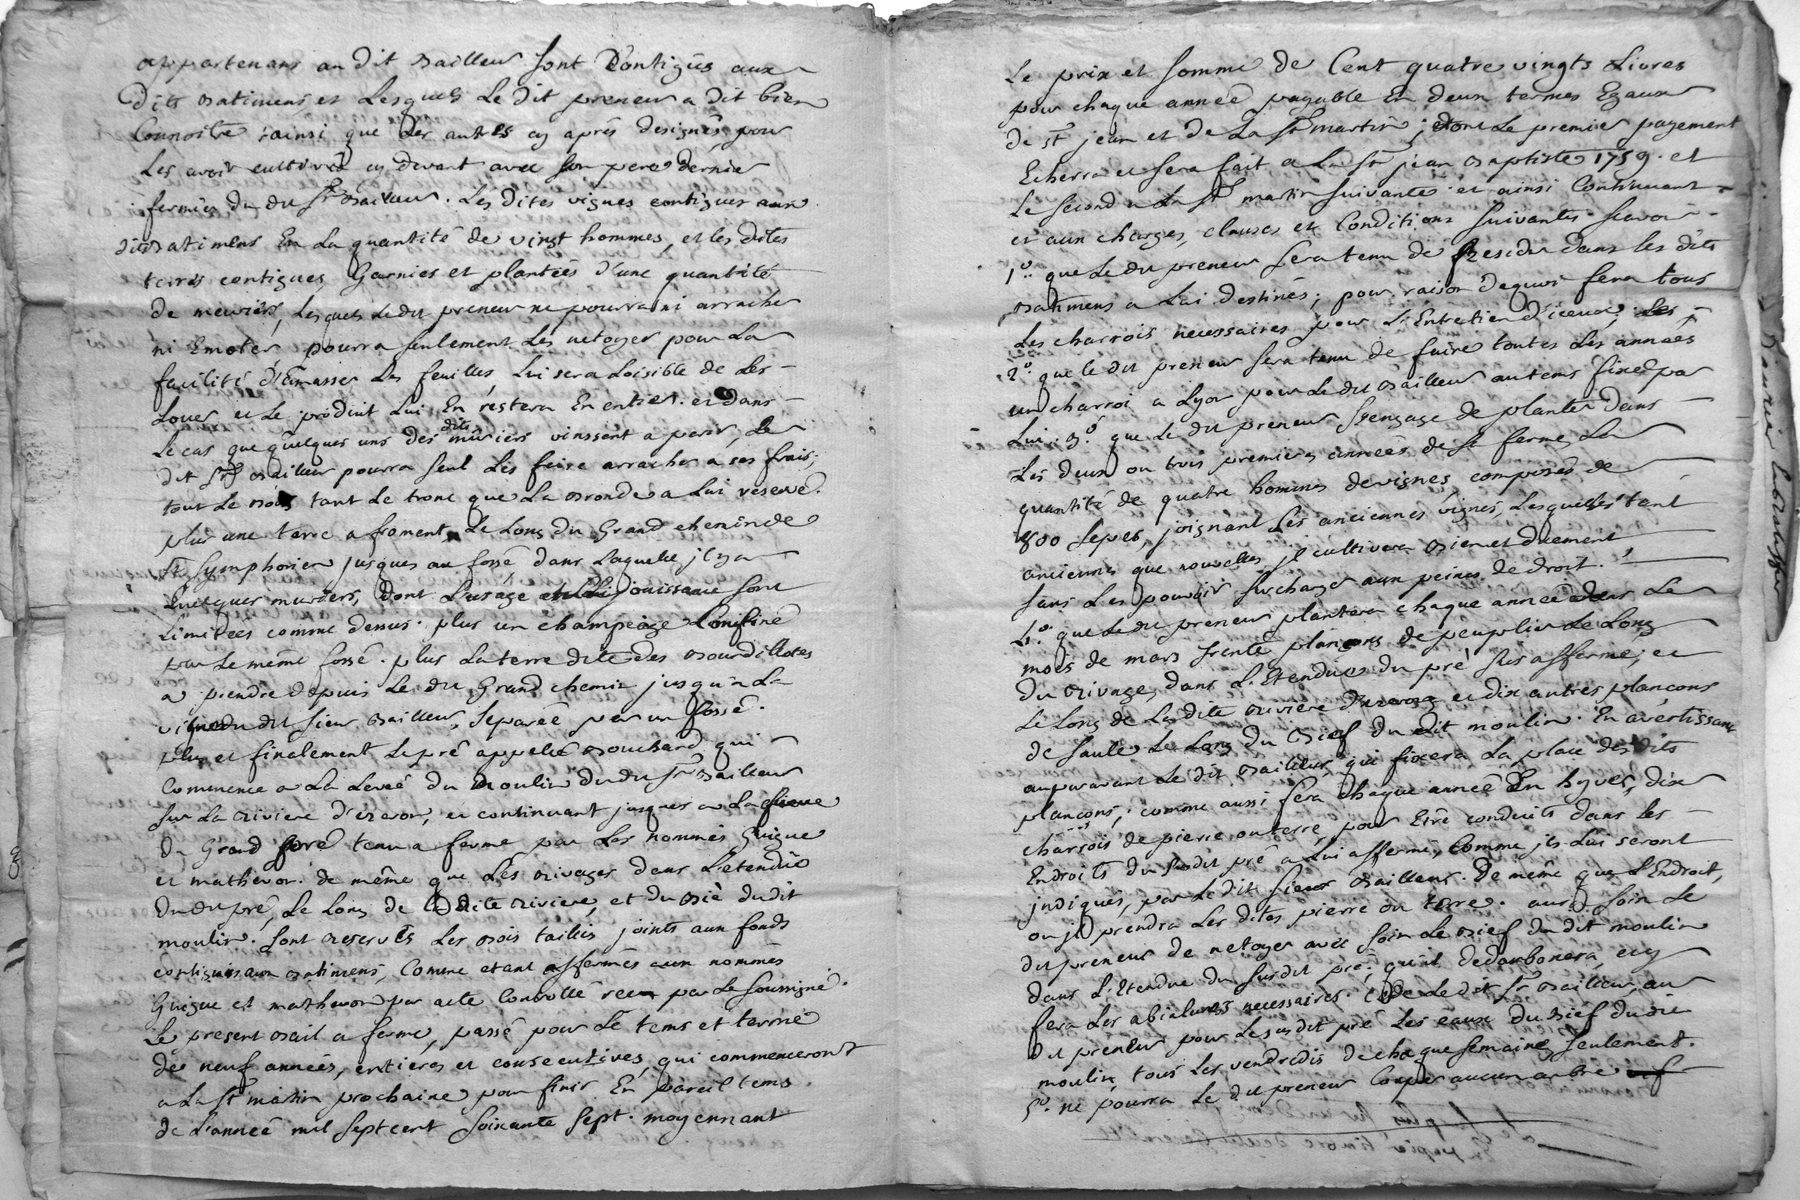 appartenans au dit Bailleur sont Contigües aux
Dits Batimens et Lesquels Le dit preneur a dit bien
Connoitre, ainsi que Les autres cy après designés, pour
Les avoir cultivé cy devant avec son pere dernier
fermier du du Sr Bailleur. Les dites vignes contigues aux
dits Batimens En La quantité de vingt hommes, et les dites
terres contigues Garnies et plantées d'une quantité
de meuriers, Lesquels Le du preneur ne pourra ni arracher
ni Emoter, pourra seulement Les netoyer pour La
facilité d'amasser Les feuilles Lui sera Loisible de Les
Louer et Le produit Lui En réstera En entier. et dans
Le cas que quelques uns des dits mûriers vinssent a perir, Le
dit Sr Bailleur pourra seul Les feire arracher a ses frais;
tout Le Bois tant Le tronc que La Bronde a Lui reservé.
plus une terre a froment Le Long du Grand chemin de
St Symphorien jusques au fossé dans Laquelle il y a
quelques muriers, dont L'usage et La jouissance sont
Limitées comme dessus. plus un champéage Confiné
par Le même fossé. plus La terre dite des Bourdillotes
a prendre depuis Le du Grand chemin jusqu'a La
vigne du dit sieur Bailleur, séparée par un fossé.
plus et finalement Le pré appellé Bouchard qui
Commence a La Levée du Moulin du du Sr Bailleur
sur La Riviere d'izeron, et continuant jusques a La
Du Grand pré tenu a ferme par Les nommés Guigue
et mathevon. de même que Les rivages dans L'etendüe
du du pré, Le Long de La dite riviere, et du Biè du dit
moulin. sont reservés Les Bois taillis joints aux fonds
contigus aux Batimens, Comme etant affermés aux nommés
Guigue et mathevon par acte Controllé reçu par Le soussigné.
Le present Bail a ferme, passé pour Le tems et terme
de neuf années, entieres et consecutives, qui commenceront
a La St martin prochaine pour finir En pareil tems
de L'année mil sept cent soixante sept. moyennant
Le prix et somme de Cent quatre vingts Livres
pour chaque année payable En deux termes Egaux
De St jean et de La St martin; dont Le premier payement
Echerra et sera fait a La St jean Baptiste 1759. et
Le second a La St martin suivante et ainsi Continuant
et aux charges, clauses et Conditions suivantes scavoir
1o. que Le du preneur sera tenu de Resider dans les dits
Batimens a Lui destinés, pour raison dequoi fera tous
Les charrois necessaires pour L'Entretien d'iceux;
2o. que le dit preneur sera tenu de faire toutes Les années
un charroi a Lyon pour Le du Bailleur au tems fixé par
Lui. 3o que Le du preneur s'engage de planter dans
Les deux ou trois premieres années de sa ferme, La
quantité de quatre hommes de vignes composés de
800 seps, joignant Les anciennes vignes, Lesquelles tant
anciennes que nouvelles il cultivera Bien et düement
sans Les pouvoir surcharger aux peines de droit.
4o. que Le du preneur plantera chaque année dans Le
mois de mars trente plançons de peuplier Le Long
du Rivage, dans L'Etendüe du pré sus affermé, et
Le Long de La dite riviere d'izeron, et dix autres plançons
de saule Le Long du Bief du dit moulin. En avertissant
auparavant Le dit Bailleur, qui fixera La place des dits
plançons; comme aussi fera chaque année En hyver, dix
charrois de pierre ou terre, pour Etre conduits dans les
Endroits du susdit pré a Lui affermé, Comme ils Lui seront
indiqués, par Le dit sieur Bailleur. De même que L'Endroit,
ou il prendra Les dites pierre ou terre. aura soin Le
dit preneur de netoyer avec soin Le Bief du dit moulin
dans L'Etendue du susdit pré; qu'il , et y
fera Les necessaires. Cede Le dit Sr Bailleur, au
dit preneur pour Le susdit pré Les eaux du Bief du dit
moulin, tous Les vendredis de chaque semaine, seulement.
5o. ne pourra Le dit preneur Couper aucun arbre